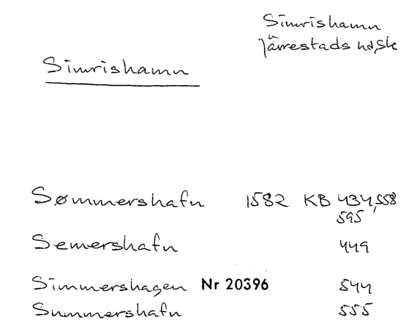 Simrishamn
Järrestads hd, Sk
Simrishamn
Sømmershafn 1582 KB 434, 558
595
Semershafn 449
Simmershagen Nr 20396 544
Summershafn 555